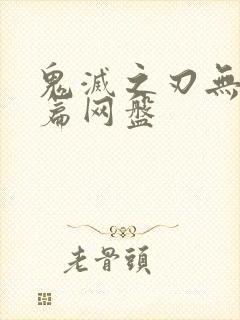 鬼滅之刃無
篇网盤
老骨頭